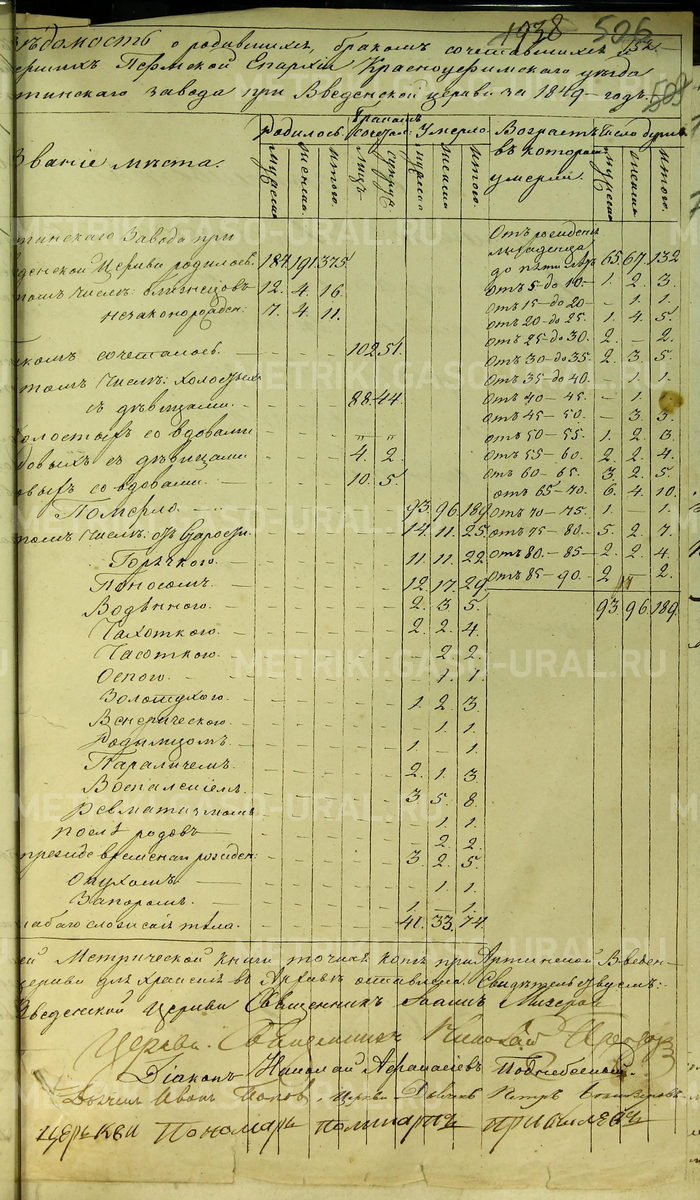 1938 506
вѣдомость о родившихся, бракомъ сочетавшихся
умершихъ Пермской Епархіи Красноуфимскаго уѣзда
тинскаго завода при Введенской церкви за 1849-годъ. 508
Званіе мѣста. Родилось Бракомъ сочетал. Умерло. Возрастъ въ которомъ умерли. Число душъ
мужеска женска итого. лицъ супруж. мужеска женска итого. мужеска женска итого.
тинскаго Завода при
веденской Церкви родилось. 184. 191. 375.
томъ числѣ: близнецовъ 12. 4. 16.
незаконорожден: 7. 4. 11.
комъ сочеталось. 102. 51.
томъ числѣ: холостыхъ
съ дѣвицами. 88. 44.
холостыхъ со вдовами " "
довыхъ съ дѣвицами 4. 2.
довыхъ со вдовами. 10. 5.
Померло. 93. 96. 189.
томъ числѣ: отъ старости. 14. 11. 25.
Горячкою. 11. 11. 22.
Поносомъ. 12. 17. 29.
Водяною. 2. 3. 5.
Чахоткою. 2. 2. 4.
2. 2.
Оспою. 1. 1.
Золотухою. 1. 2. 3.
Венерическою. 1. 1.
Родимцомъ. 1. - 1.
Параличемъ. 2. 1. 3.
Воспаленіемъ. 3. 5. 8.
Ревматизмомъ 1. 1.
послѣ родовъ 2. 2.
прежде временнаго рожден: 3. 2. 5.
Опухолью. 1. 1.
Запоромъ. 1. - 1.
слабаго сложенія тѣла. 41. 33. 74.
Отъ рожденія
младенца
до пяти лѣтъ 65. 67. 132
Отъ 5 - до 10 - 1. 2. 3.
Отъ 15 - до 20 - - 1. 1.
Отъ 20 - до 25. 1. 4. 5.
Отъ 25 - до 30. 2. - 2.
Отъ 30 - до 35. 2. 3. 5.
Отъ 35 - до 40. - 1. 1.
Отъ 40 - 45. - 1. 1.
Отъ 45 - 50. - 3. 3.
Отъ 50 - 55. 1. 2. 3.
Отъ 55 - 60. 2. 2. 4.
Отъ 60 - 65. 3. 2. 5.
Отъ 65 - 70. 6. 4. 10.
Отъ 70 - 75. 1. - 1.
Отъ 75 - 80. 5. 2. 7.
Отъ 80. - 85 - 2. 2. 4.
Отъ 85 - 90. 2. " 2.
93. 96. 189.
сей Метрической книги точная копія при Артинской Введен-
церкви для храненія въ Архивѣ оставлена. Свидѣтельствуемъ:
Введенской Церкви Священникъ Іоаннъ
Церкви Священникъ Николай
Діаконъ Николай Афанасіевъ
Дьячекъ Иванъ Поповъ. Церкви Дьячекъ Петръ
церкви Пономарь Поликарпъ Прибылевъ
METRIKI.GASO-URAL.RU